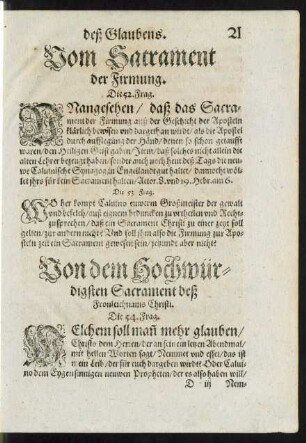 deß Glaubens. 21
Vom Sacrament
der Firmung.
Die 52. Frag.
Unangesehen / daß das Sacra-
ment der Firmung auß der Geschicht der Aposteln
klärlich bewisen vnd dargethan wirdt / als die Apostel
durch aufflegung der Händ / denen so schon getaufft
waren / den Heiligen Geist gaben / Item / daß solches nicht allein die
alten Lehrer bezeugt haben / sonder auch noch heut deß Tags die newe
we Calvinische Synagog in Engellandt gut haltet / dannocht wöl-
let jhrs für kein Sacrament halten / Actor. 8. vnd 19. Hebr. am 6.
Die 53. Frag.
Wo her kompt Calvino euwerm Großmeister der gewalt
vnd befelch / auß eignem beduncken zu vrtheilen vnd Rechts
zusprechen / daß ein Sacrament Christi zu einer zeyt soll
gelten / zur andern nicht? Vnd soll jhm also die Firmung zur Apo-
steln zeit ein Sacrament gewesen sein / jetzundt aber nicht?
Von dem Hochwür-
digsten Sacrament deß
Fronleichnams Christi.
Die 54. Frag.
Welchem soll mañ mehr glauben /
Christo dem Herren / der an sein em letzen Abendmal /
mit hellen Worten sagt / Nemmet vnd esset / das ist
mein Leib / der für euch dargeben wirdt? Oder Calui-
no dem Eygensinnigen neuwen Propheten / der es also haben will /
D iij Nem-